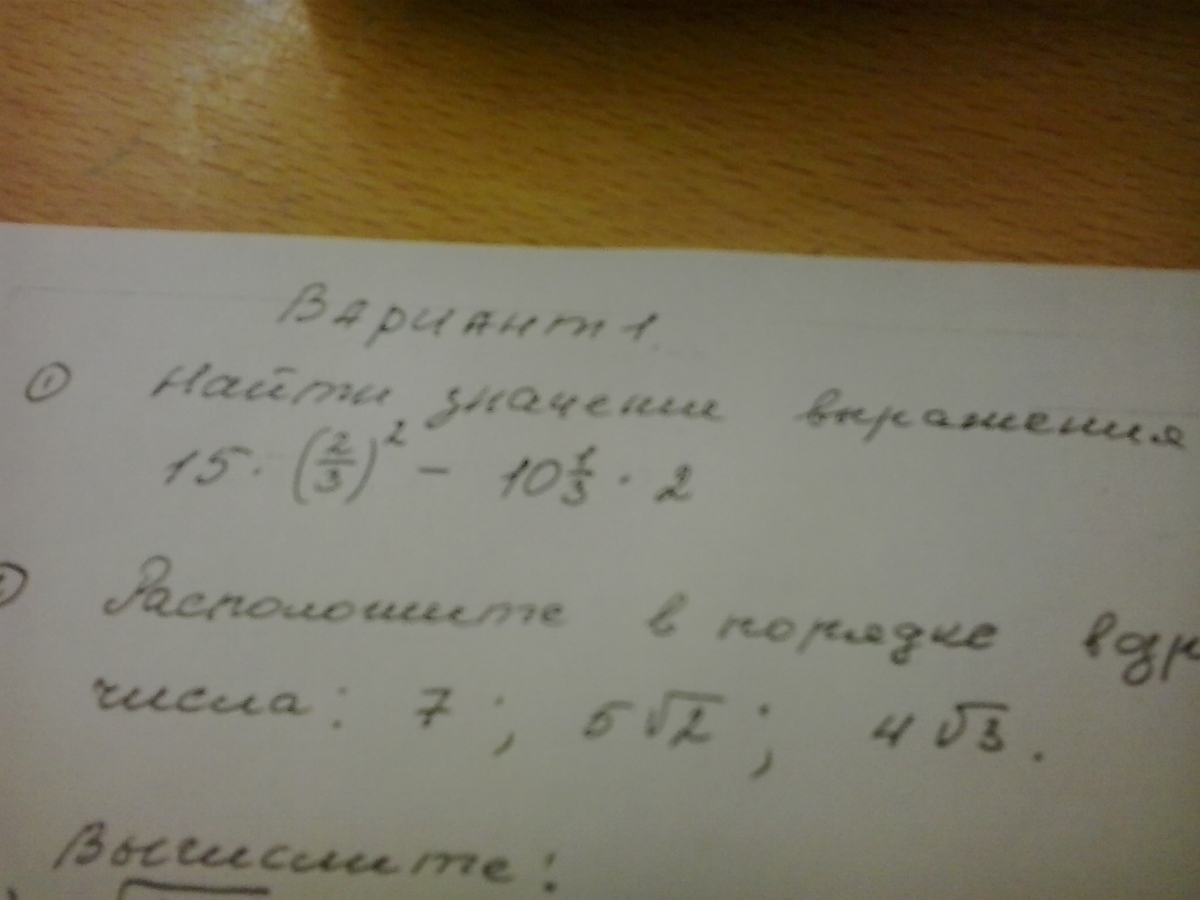 Вариант 1.
① Найти значении выражения
15 · (2/3)² - 10 1/3 · 2
Расположите в порядке
числа: 7 ; 5√2 ; 4√3 .
Вычислите: